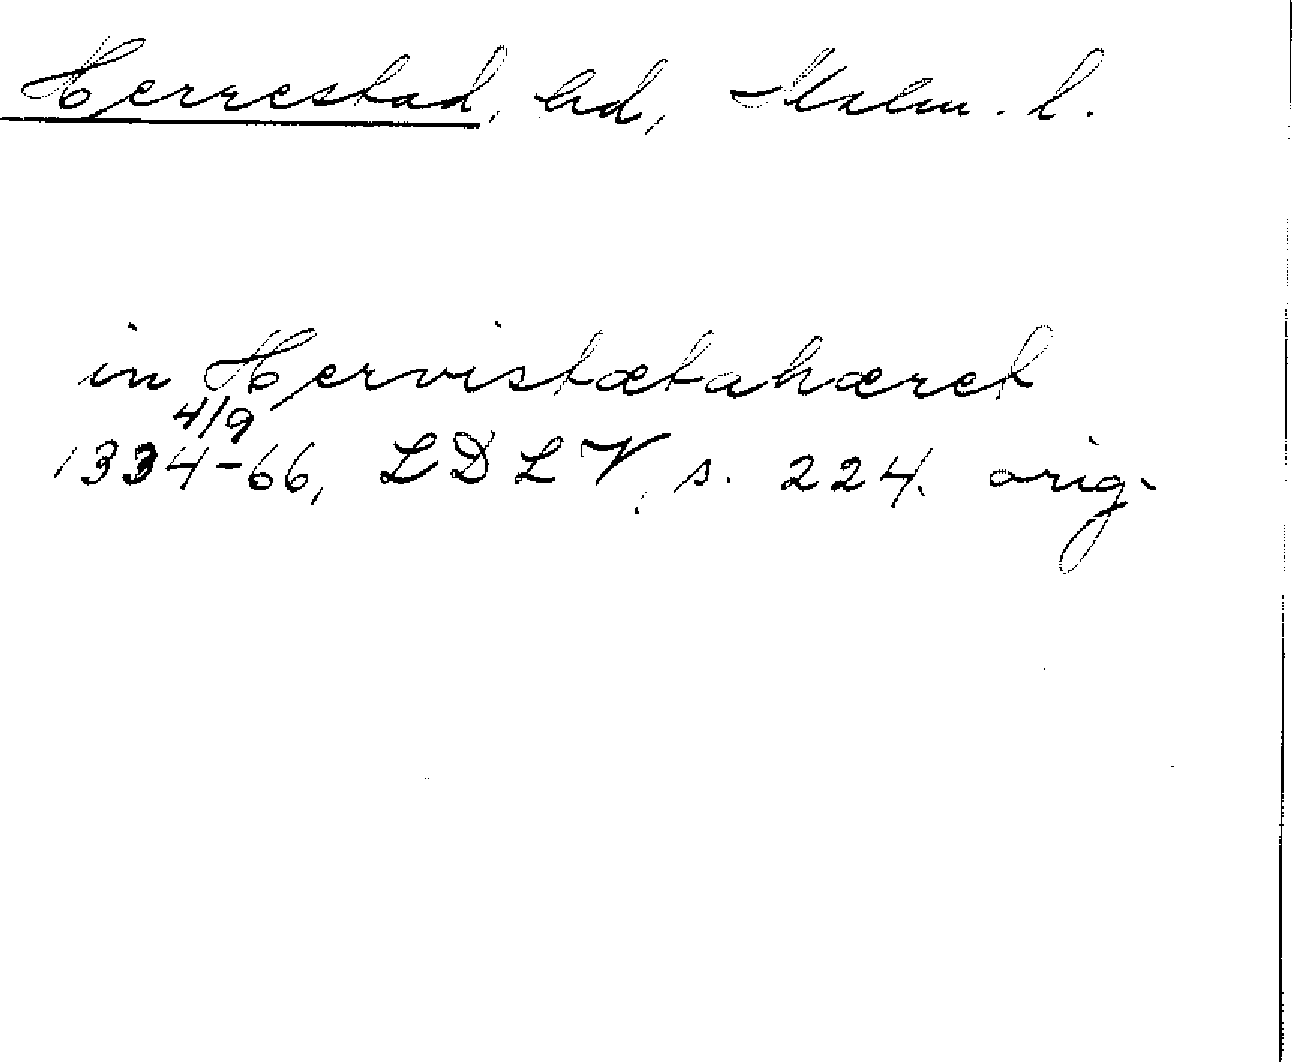 Herrestad, hd, Malm. l.
in Hervistætahæret
4/9
1334-66, LDLV, s. 224. orig.